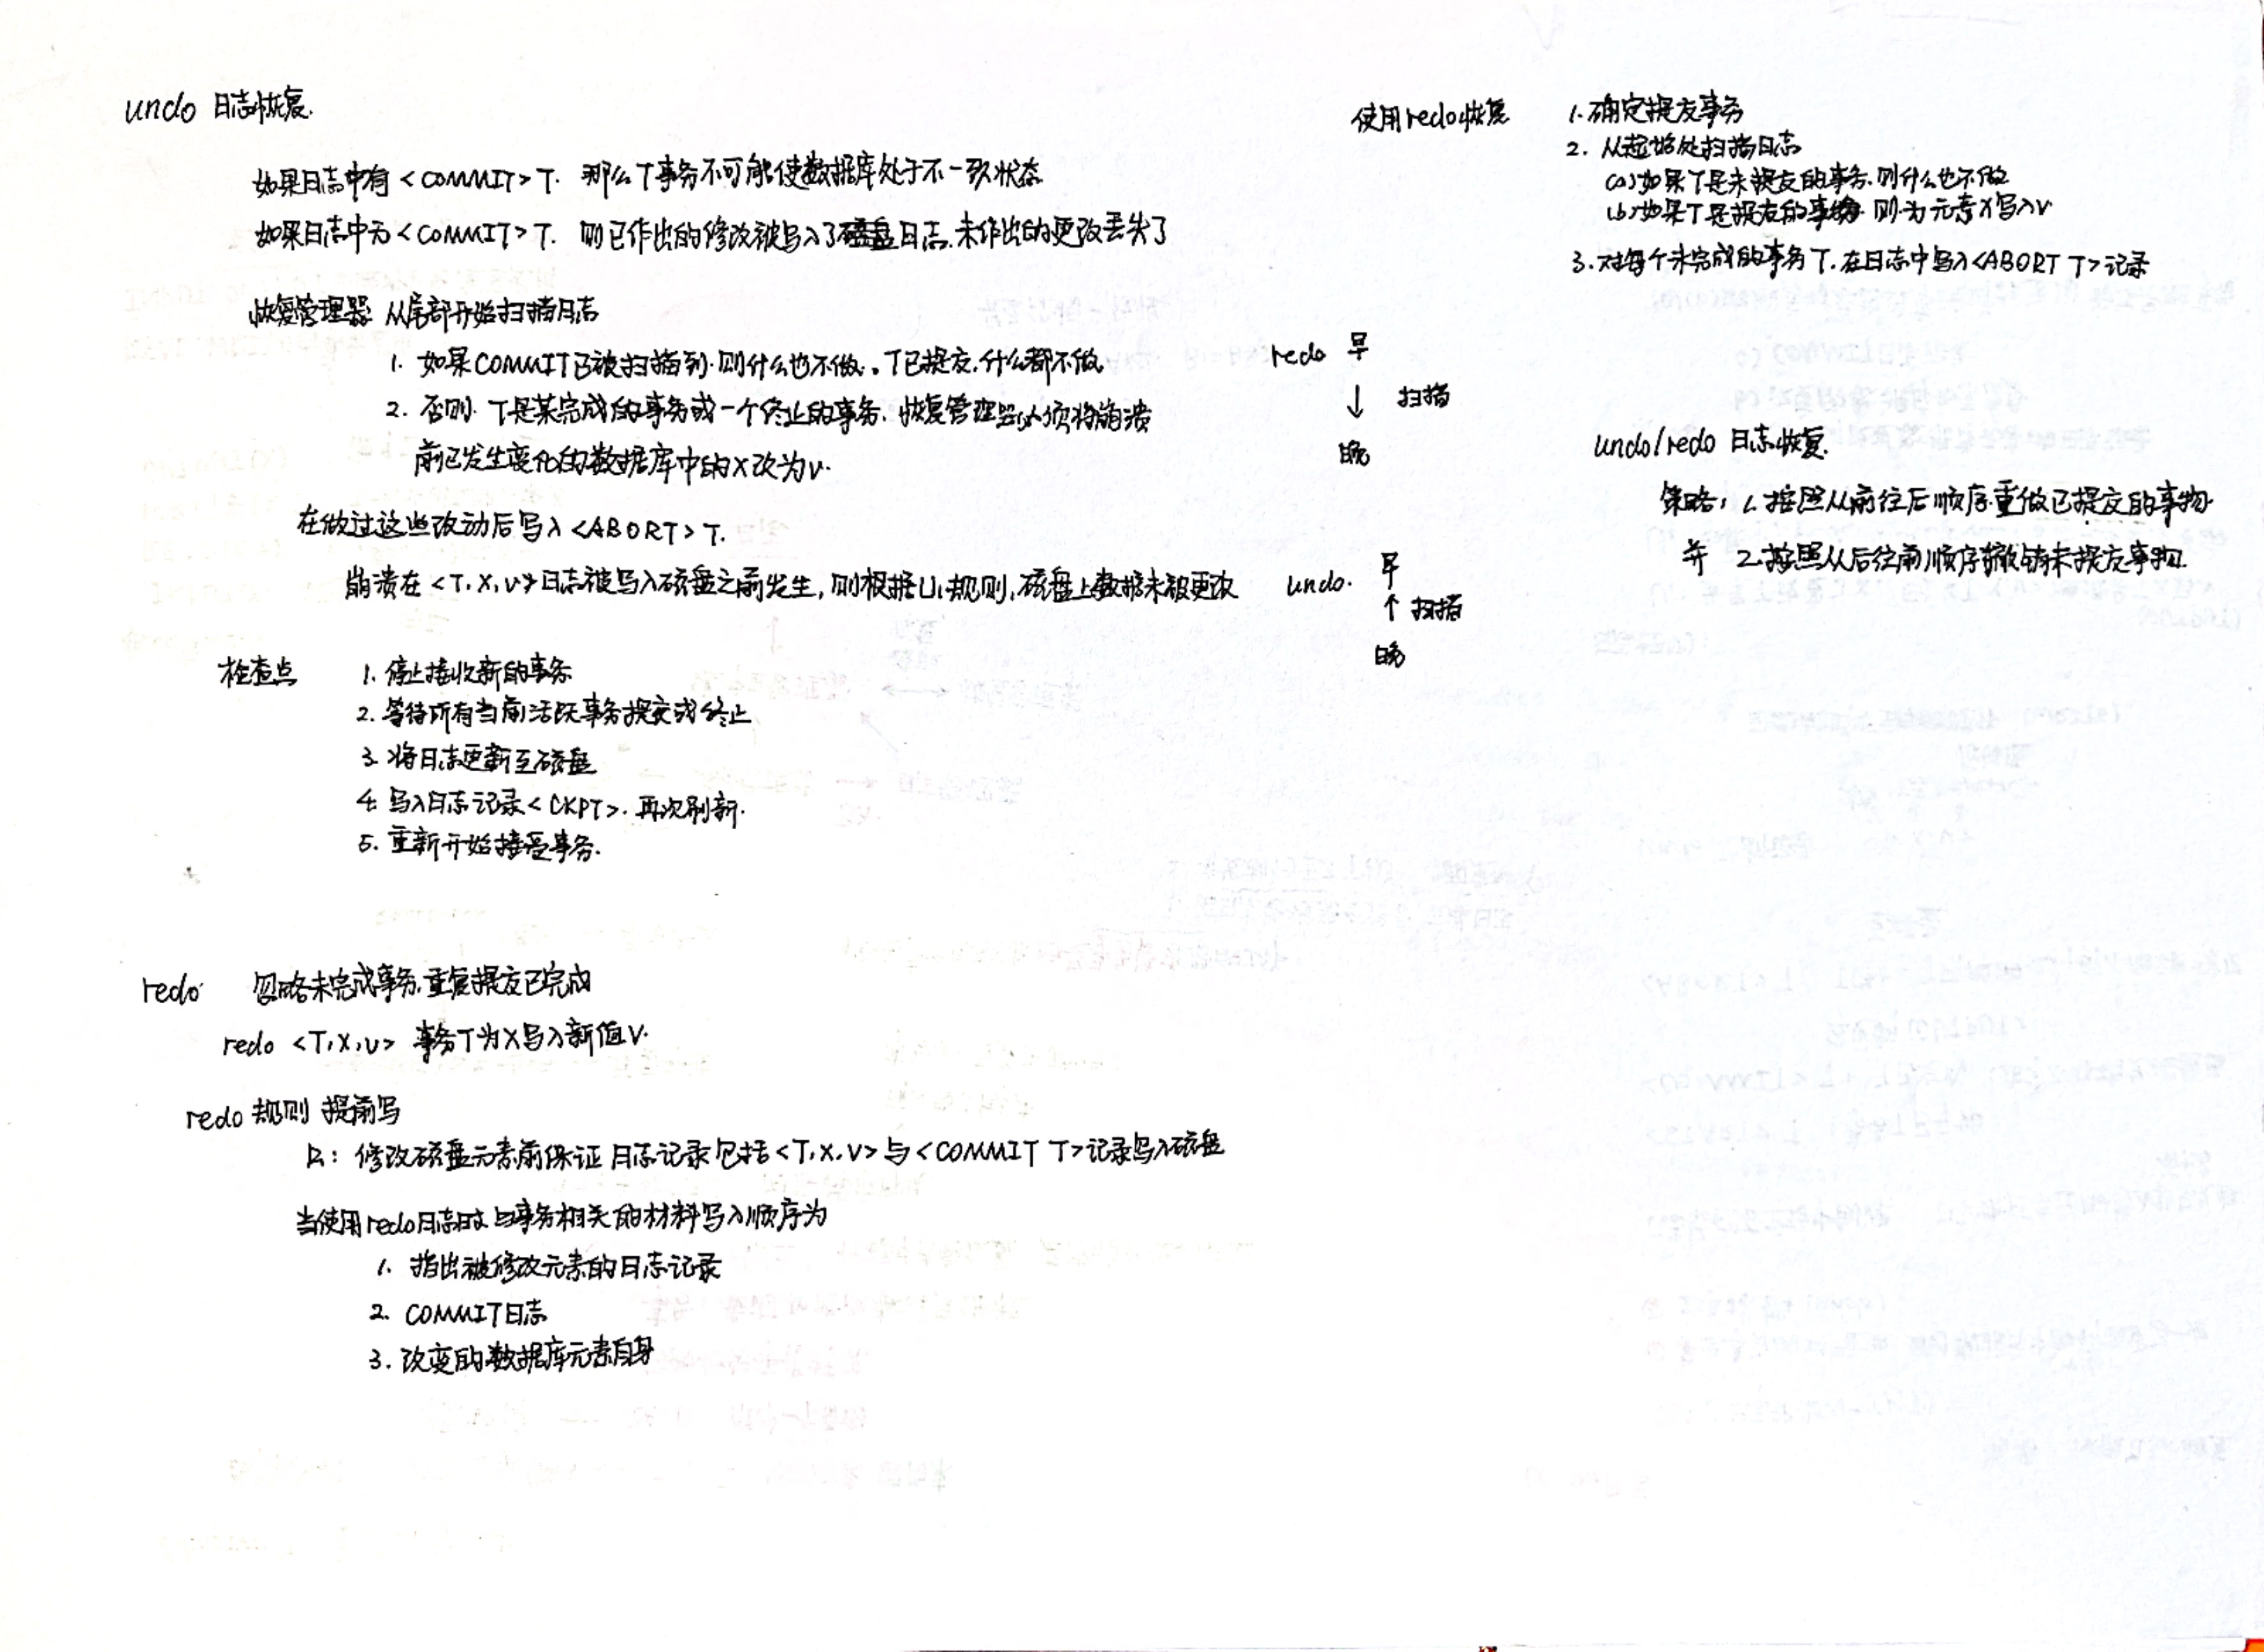 undo 日志恢复.
如果日志中有<COMMIT>T. 那么T事务不可能使数据库处于不一致状态
如果日志中无<COMMIT>T. 则已作出的修改被写入了磁盘日志.未作出的更改丢失了
恢复管理器 从尾部开始扫描日志
1. 如果COMMIT已被扫描到.则什么也不做。T已提交.什么都不做
2. 否则. T是某完成的事务或一个终止的事务. 恢复管理器必须将崩溃
前已发生变化的数据库中的X改为V.
在做过这些改动后写入<ABORT>T.
崩溃在<T,X,V>日志被写入磁盘之前发生,则根据U1规则,磁盘上数据未被更改
检查点 1. 停止接收新的事务
2. 等待所有当前活跃事务提交或终止
3. 将日志更新至磁盘
4. 写入日志记录<CKPT>. 再次刷新.
5. 重新开始接受事务.
redo 忽略未完成事务.重复提交已完成
redo <T,X,V> 事务T为X写入新值V.
redo 规则 提前写
R1: 修改磁盘元素前保证 日志记录包括<T,X,V>与<COMMIT T>记录写入磁盘
当使用redo日志时 与事务相关的材料写入顺序为
1. 指出被修改元素的日志记录
2. COMMIT日志
3. 改变的数据库元素自身
使用redo恢复 1. 确定提交事务
2. 从起始处扫描日志
(a)如果T是未提交的事务.则什么也不做
(b)如果T是提交的事务. 则.为元素X写入V
3. 对每个未完成的事务T.在日志中写入<ABORT T>记录
redo 早
↓ 扫描
晚
undo. 早
↑ 扫描
晚
undo/redo 日志恢复.
策略: 1. 按照从前往后顺序.重做已提交的事物
并 2. 按照从后往前顺序撤销未提交事物.